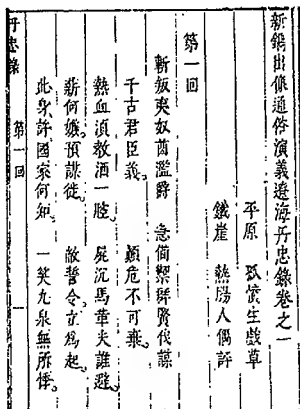 新鐫出像通俗演義遼海丹忠錄卷之一
平原 孤憤生戲草
鐵崖 熱腸人偶評
第一回
斬叛夷奴酋濫爵 急備禦群賢伐謀
千古君臣義。 顛危不可棄。
熱血湏教洒一腔。 屍沉馬革夫誰避。
薪何嫌預謀徙。 敵誓令立為起。
此身許國家何知。 一笑九泉無所悸。
丹忠錄 第一回 一